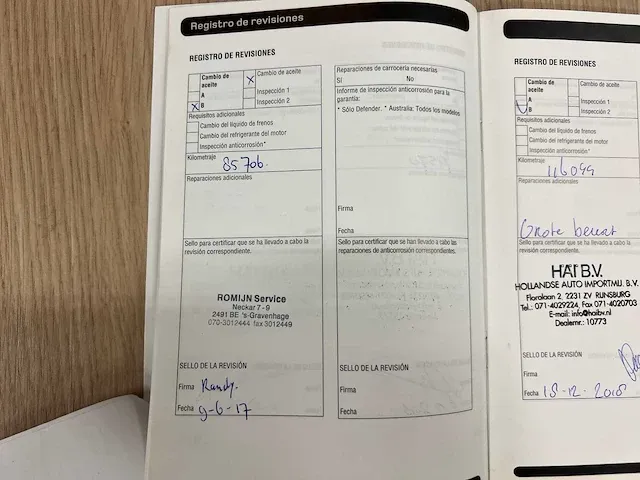 Registro de revisiones
REGISTRO DE REVISIONES
Cambio de aceite
X Cambio de aceite
A
Inspección 1
X B
Inspección 2
Requisitos adicionales
Cambio del líquido de frenos
Cambio del refrigerante del motor
Inspección anticorrosión*
Kilometraje
85706.
Reparaciones adicionales
Sello para certificar que se ha llevado a cabo la
revisión correspondiente.
ROMIJN Service
Neckar 7 - 9
2491 BE 's-Gravenhage
070-3012444 fax 3012449
SELLO DE LA REVISIÓN
Firma Randy.
Fecha 9-6-17
Reparaciones de carrocería necesarias
SI No
Informe de inspección anticorrosión para la
garantía:
* Sólo Defender. * Australia: Todos los modelos
Firma
Fecha
Sello para certificar que se han llevado a cabo las
reparaciones de anticorrosión correspondientes.
SELLO DE LA REVISIÓN
Firma
Fecha
REGISTRO DE REVISIONES
Cambio de aceite
Cambio de aceite
A
Inspección 1
B
Inspección 2
Requisitos adicionales
Cambio del líquido de frenos
Cambio del refrigerante del motor
Inspección anticorrosión*
Kilometraje
116099
Reparaciones adicionales
Grote beurt
Sello para certificar que se ha llevado a cabo la
revisión correspondiente.
HAI B.V.
HOLLANDSE AUTO IMPORTMIJ. B.V.
Floralaan 2, 2231 ZV RIJNSBURG
Tel.: 071-4029224, Fax 071-4020703
E-mail: info@haibv.nl
Dealernr.: 10773
SELLO DE LA REVISIÓN
Firma
Fecha 18-12-2018